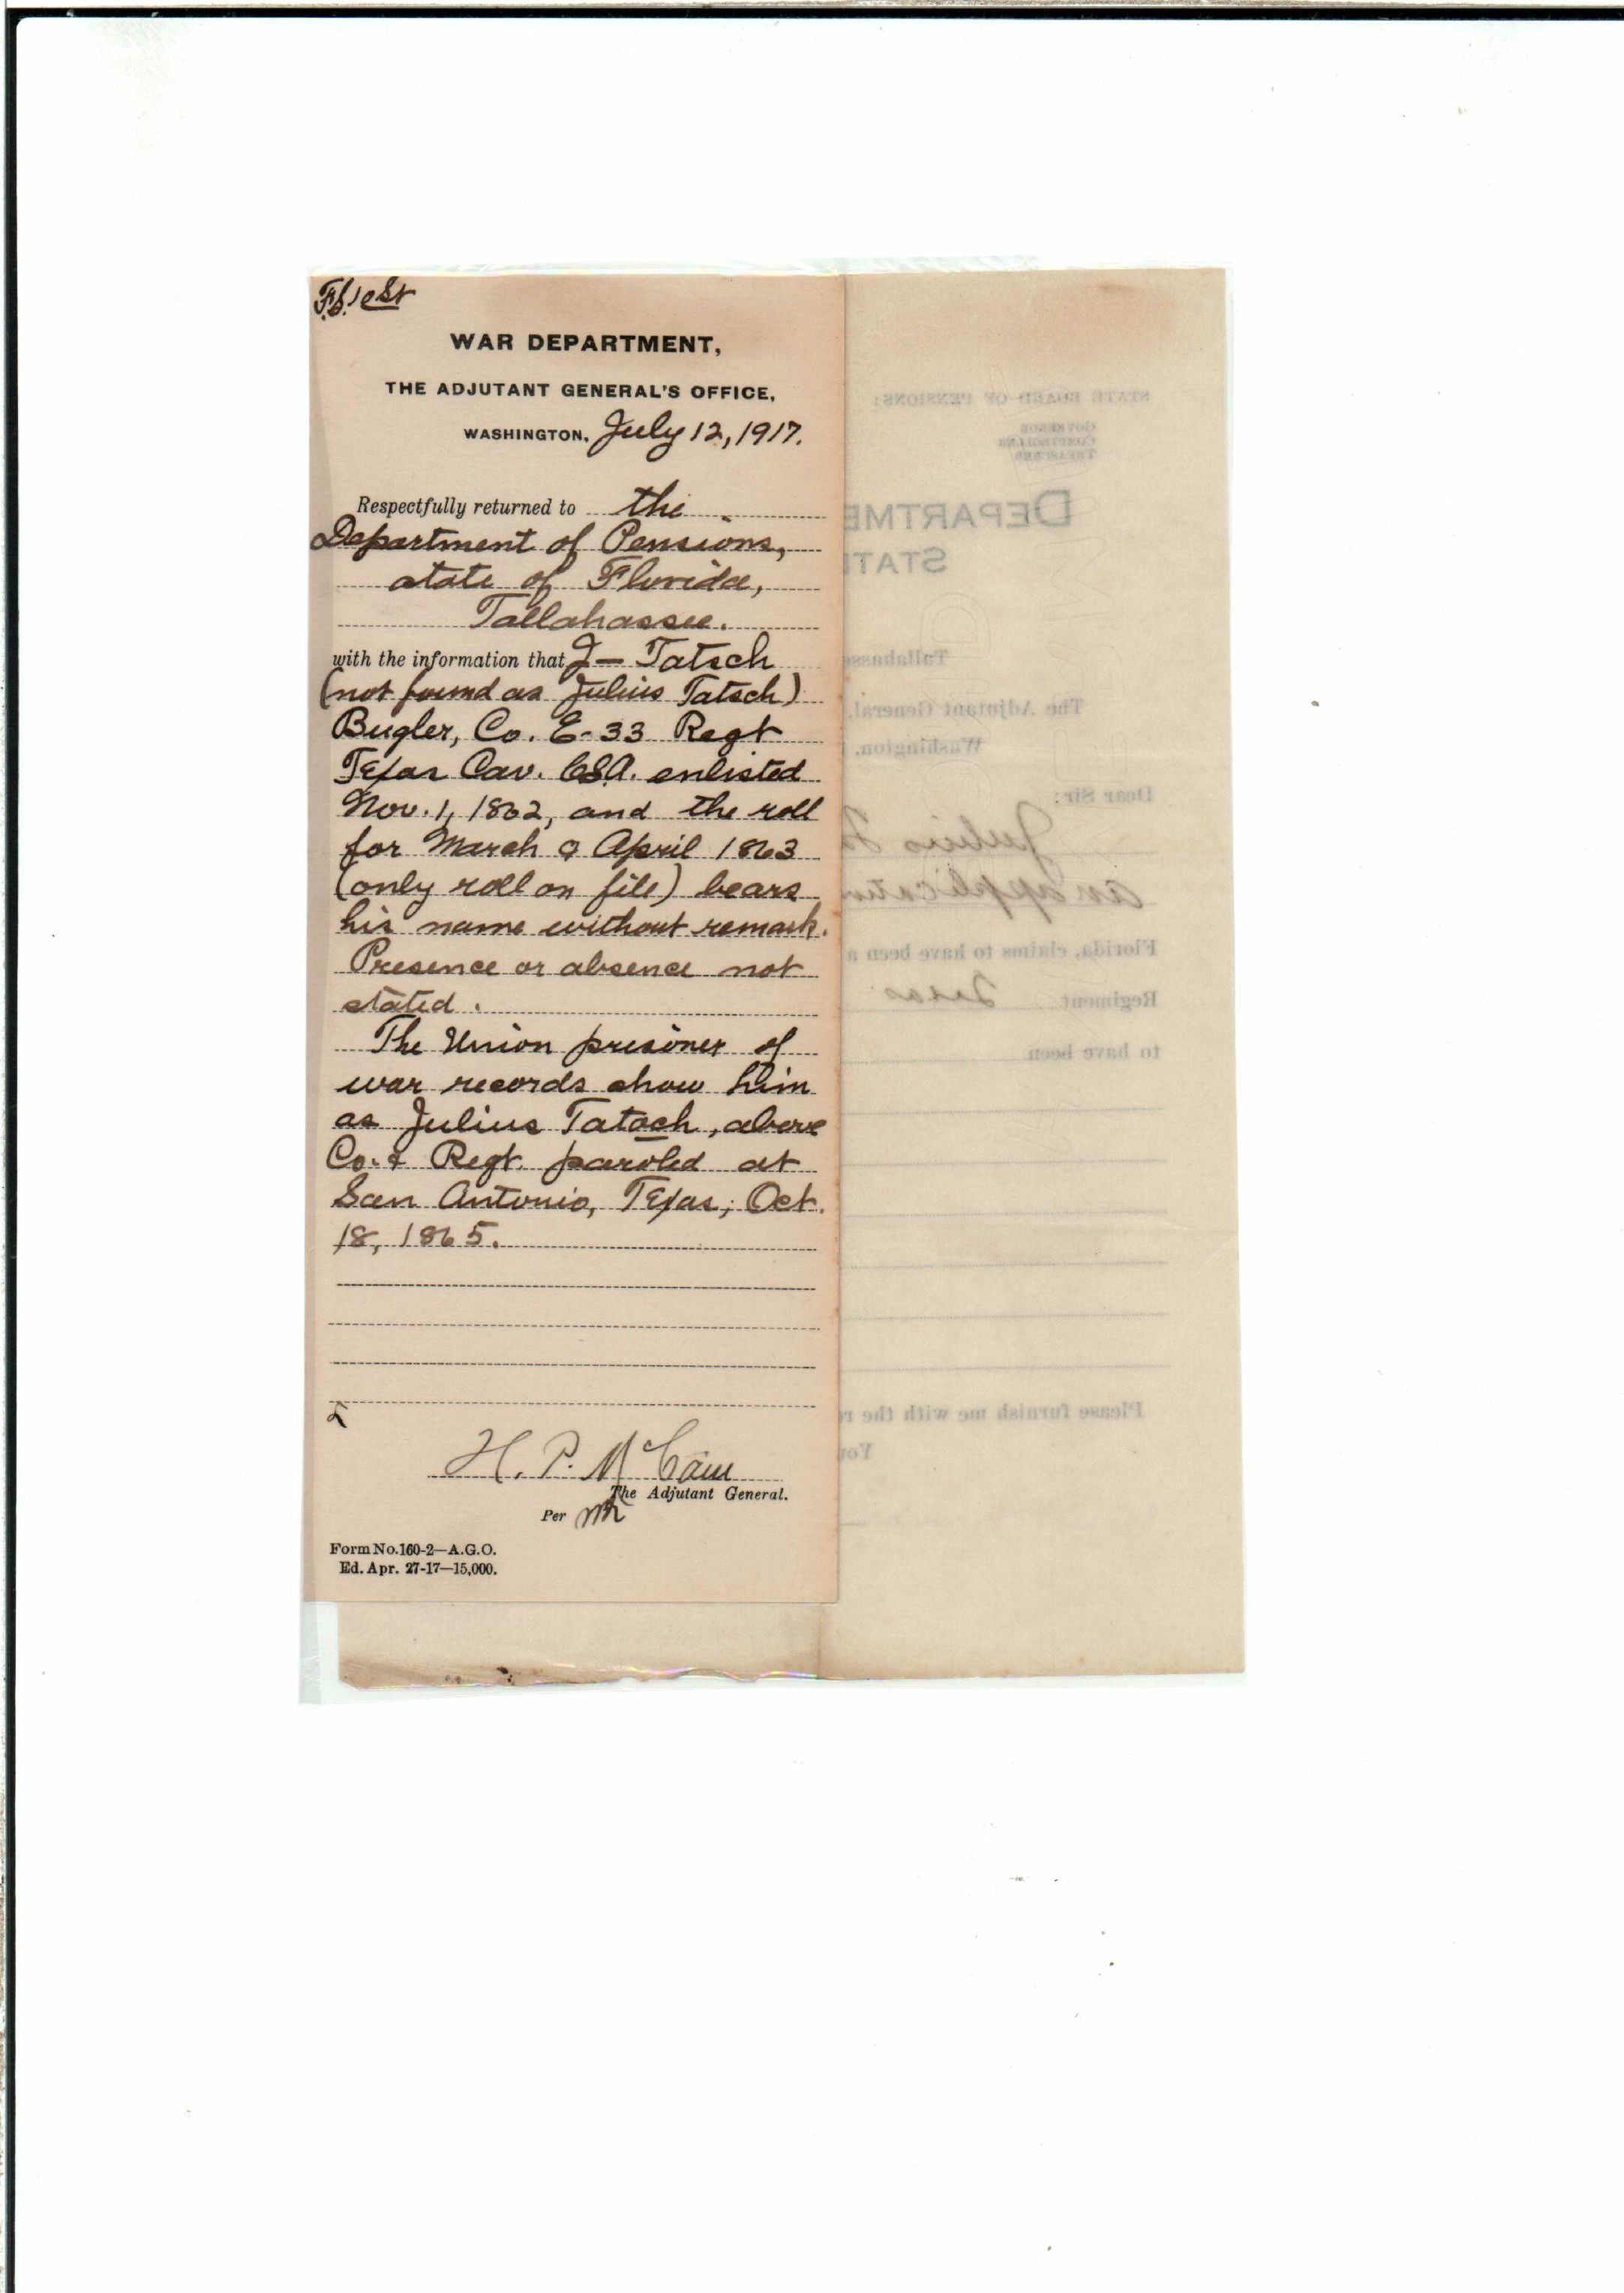 WAR DEPARTMENT,
THE ADJUTANT GENERAL'S OFFICE,
WASHINGTON, July 12, 1917.
Respectfully returned to the
Department of Pensions,
state of Florida,
Tallahassee.
with the information that J— Tatsch
(not found as Julius Tatsch)
Bugler, Co. E-33 Regt
Texas Cav. C.S.A. enlisted
Nov. 1, 1862, and the roll
for March & April 1863
(only roll on file) bears
his name without remark.
Presence or absence not
stated.
The Union prisoner of
war records show him
as Julius Tatsch, above
Co. & Regt. paroled at
San Antonio, Texas, Oct.
18, 1865.
H. P. McCain
The Adjutant General.
Per
Form No. 160-2—A.G.O.
Ed. Apr. 27-17—15,000.
STATE BOARD OF PENSIONS:
GOVERNOR
COMPTROLLER
TREASURER
DEPARTME
STAT
Tallahasse
The Adjutant General,
Washington,
Dear Sir:
Julius
an application
Florida, claims to have been a
Regiment Texas
to have been
Please furnish me with the r
You